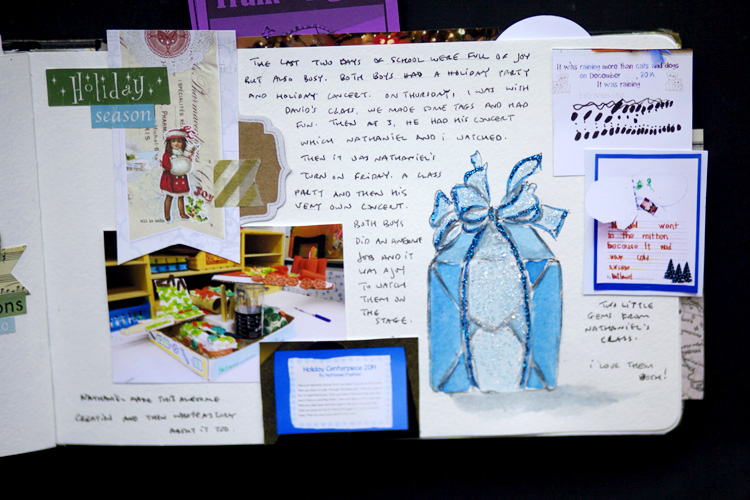 Holiday
season
THE LAST TWO DAYS OF SCHOOL WERE FULL OF JOY
BUT ALSO BUSY. BOTH BOYS HAD A HOLIDAY PARTY
AND HOLIDAY CONCERT. ON THURSDAY, I WAS WITH
DAVID'S CLASS. WE MADE SOME TAGS AND HAD
FUN. THEN AT 3, HE HAD HIS CONCERT
WHICH NATHANIEL AND I WATCHED.
THEN IT WAS NATHANIEL'S
TURN ON FRIDAY. A CLASS
PARTY AND THEN HIS
VERY OWN CONCERT.
BOTH BOYS
DID AN AWESOME
JOB AND IT
WAS A JOY
TO WATCH
THEM ON
THE
STAGE.
It was raining more than cats and dogs
on December , 2014
It was raining
want
to the mitten
because it was
very cold
TWO LITTLE
GEMS FROM
NATHANIEL'S
CLASS.
I LOVE THEM
BOTH!
Joy
Holiday Centerpiece 2014
NATHANIEL MADE THIS AWESOME
CREATION AND THEN WROTE A STORY
ABOUT IT TOO.
ons